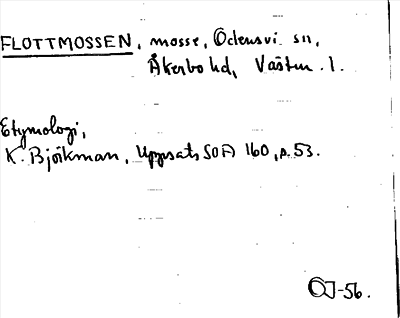 FLOTTMOSSEN, mosse, Odensvi sn,
Åkerbo hd, Västm. l.
Etymologi,
K. Björkman, Uppsats SOA 160, s. 53.
OJ-56.